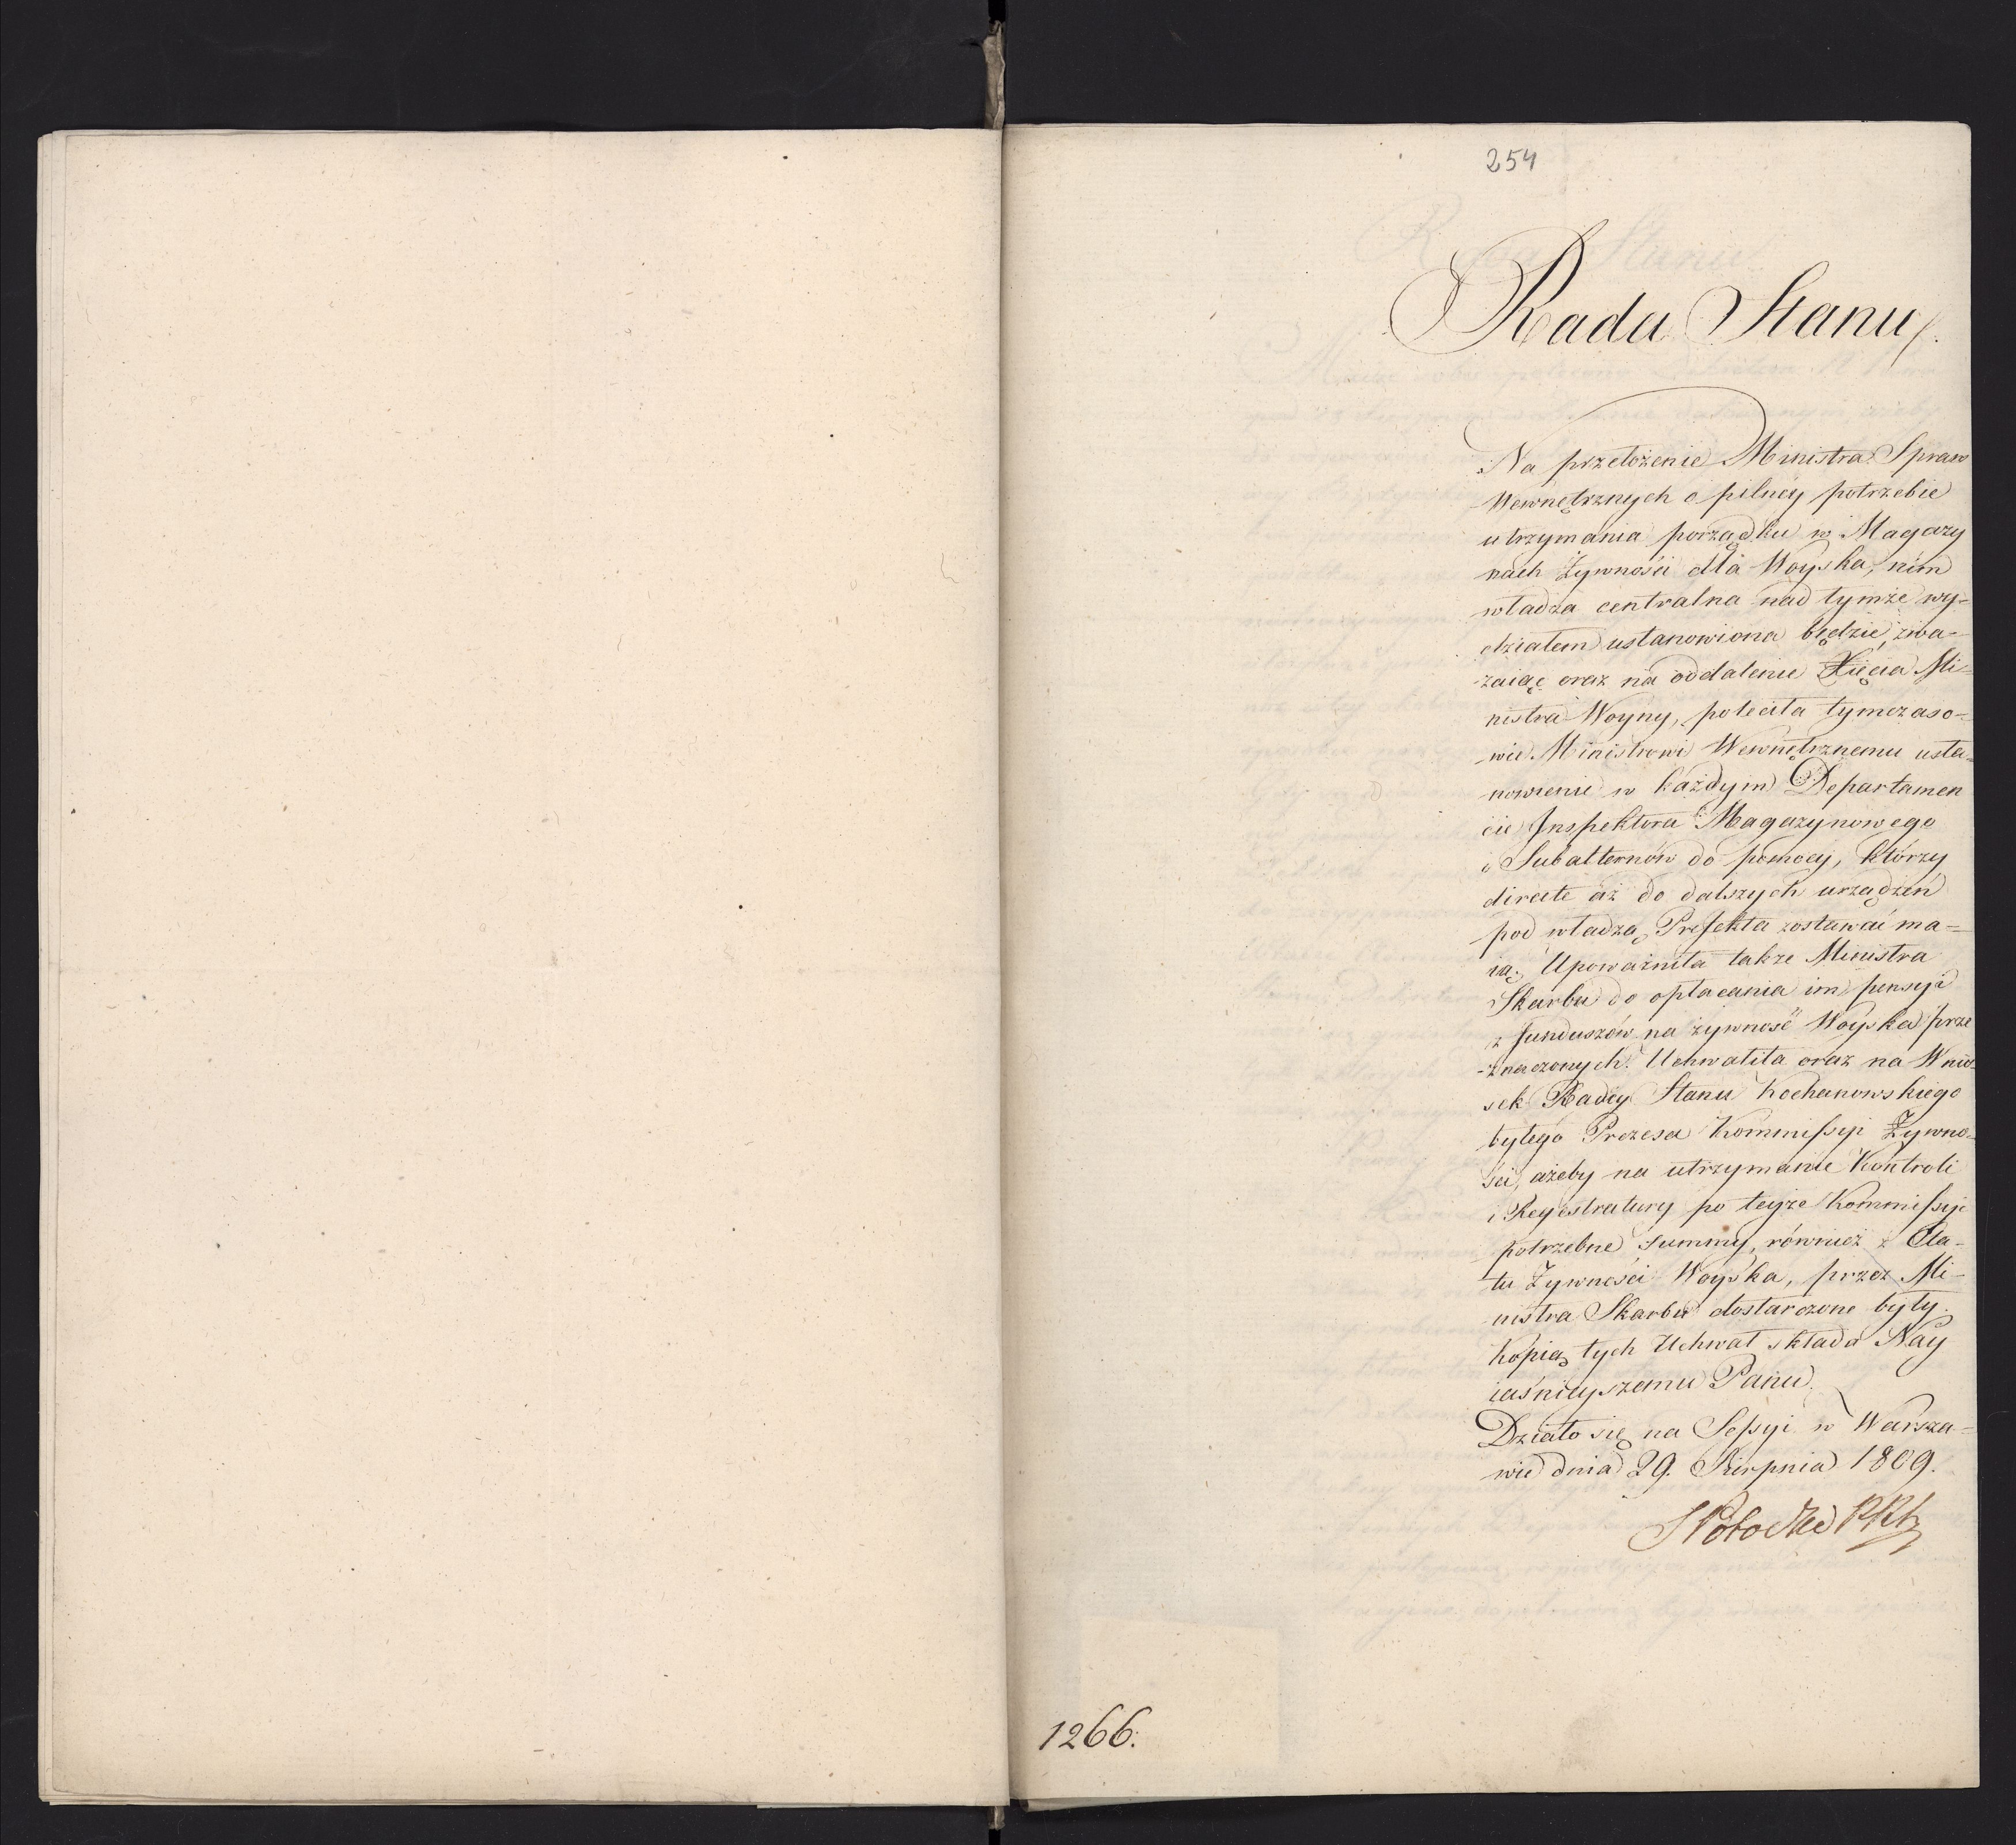 254
Rada Stanu.
Na przełożenie Ministra Spraw
Wewnętrznych o pilnéy potrzebie
utrzymania porządku w Magazy
nach Żywności dla Woyska, nim
władza centralna nad tymże wy-
działem ustanowiona będzie, zwa-
żaiąc oraz na oddalenie Xięcia Mi-
nistra Woyny, poleciła tymczaso-
wie Ministrowi Wewnętrznemu usta-
nowienie w każdym Departamen
cie Inspektora Magazynowego
i Subalternów do pomocy, którzy
directe aż do dalszych urządzeń
pod władzą Prefekta zostawać ma-
ią. Upoważniła także Ministra
Skarbu do opłacania im pensyi
z funduszów na żywność Woyska prze
znaczonych. Uchwaliła oraz na Wnio-
sek Radcy Stanu Kochanowskiego
byłego Prezesa Kommissyi Żywno-
ści, ażeby na utrzymanie Kontroli
i Regestratury po teyże Kommissyi
potrzebne summy, również z Eta-
tu Żywności Woyska, przez Mi-
nistra Skarbu dostarczone były.
Kopią tych Uchwał składa Nay
iaśnieyszemu Panu.
Działo się na Sessyi w Warsza-
wie dnia 29. Sierpnia 1809.
S Potocki
1266.